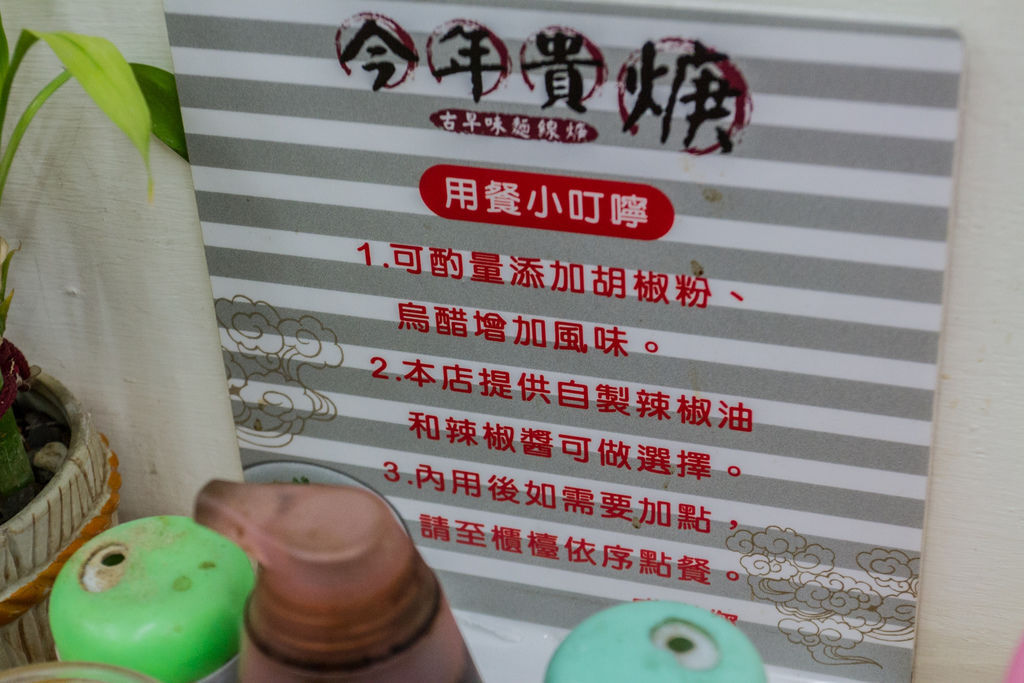 今年貴焿
古早味麵線焿
用餐小叮嚀
1.可酌量添加胡椒粉、
烏醋增加風味。
2.本店提供自製辣椒油
和辣椒醬可做選擇。
3.內用後如需要加點，
請至櫃檯依序點餐。